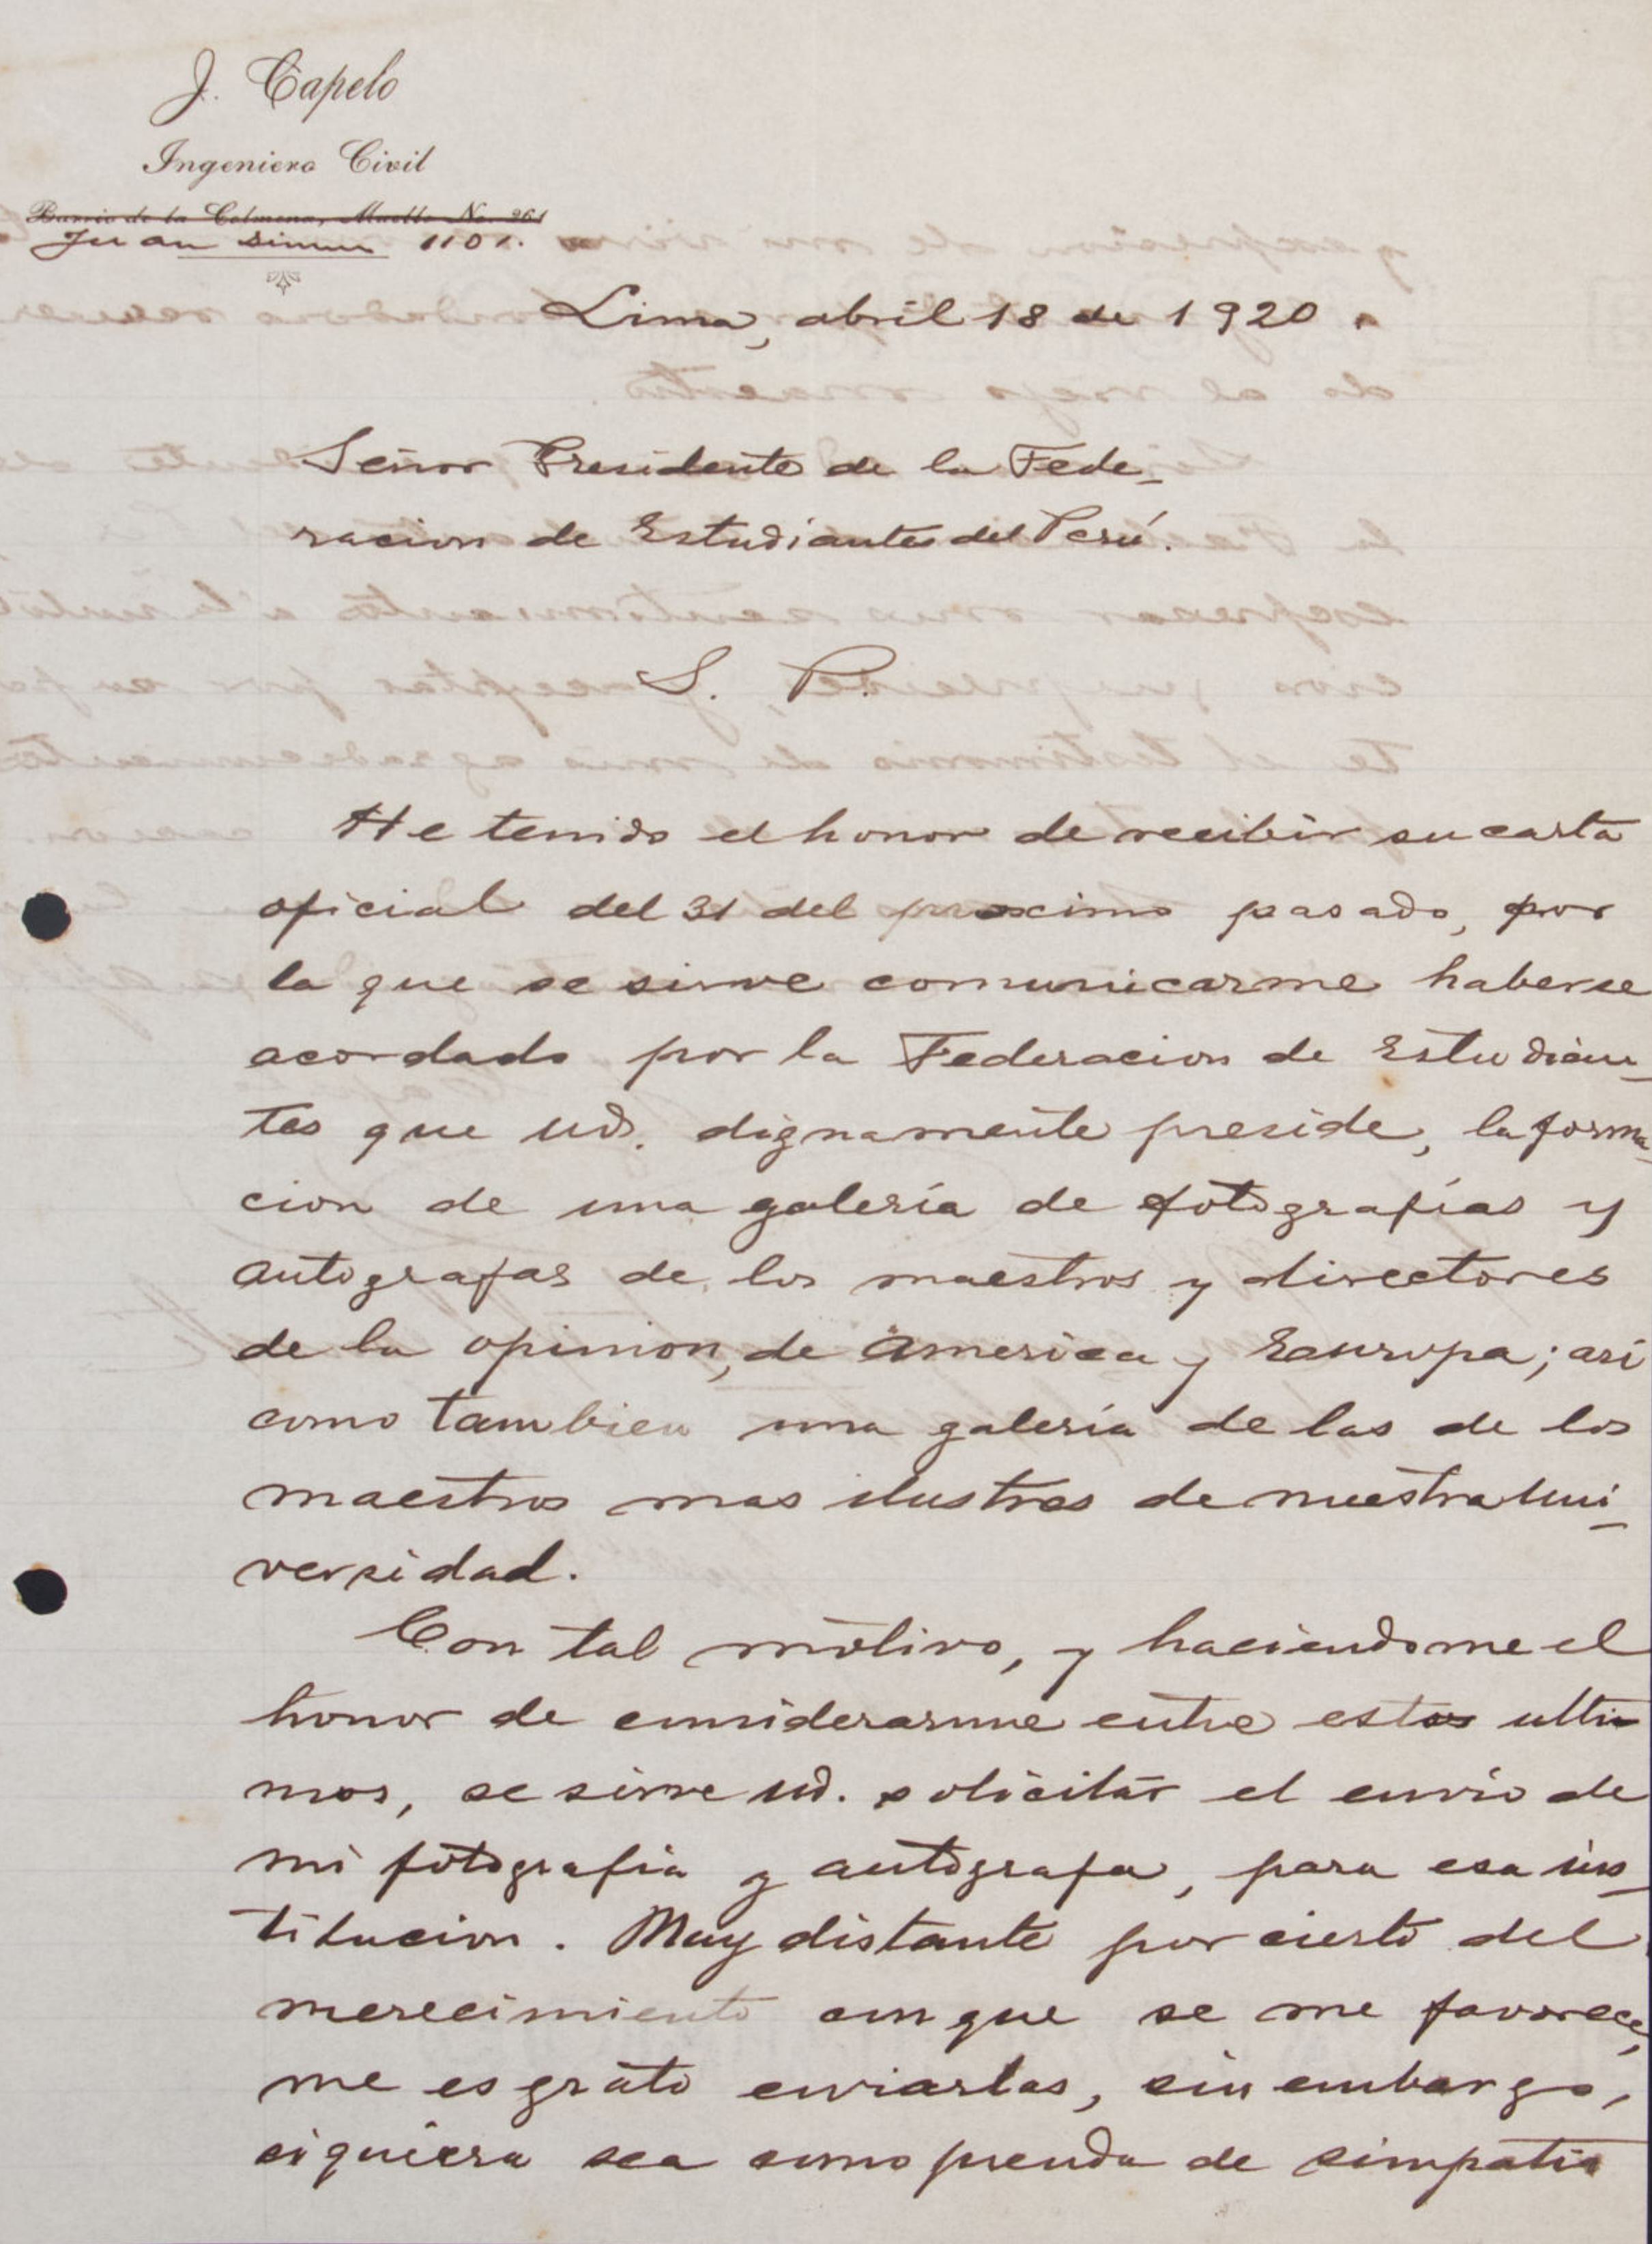 J. Capelo
Ingeniero Civil
Barrio de la Colmena, Muelle No. 261
Juan Simon 1101.
Lima, abril 18 de 1920.
Señor Presidente de la Fede-
racion de Estudiantes del Perú.
S. P.
He tenido el honor de recibir su carta
oficial del 31 del proximo pasado, por
la que se sirve comunicarme haberse
acordado por la Federacion de Estudian-
tes que ud. dignamente preside, la forma-
cion de una galería de fotografías y
autografas de los maestros y directores
de la opinion, de America y Europa; asi
como tambien una galería de las de los
maestros mas ilustres de nuestra Uni-
versidad.
Con tal motivo, y haciendome el
honor de considerarme entre estos ulti-
mos, se sirve ud. solicitar el envio de
mi fotografia y autografa, para esa ins-
titucion. Muy distante por cierto del
merecimiento con que se me favorece,
me es grato enviarlas, sin embargo,
siquiera sea como prenda de simpatia